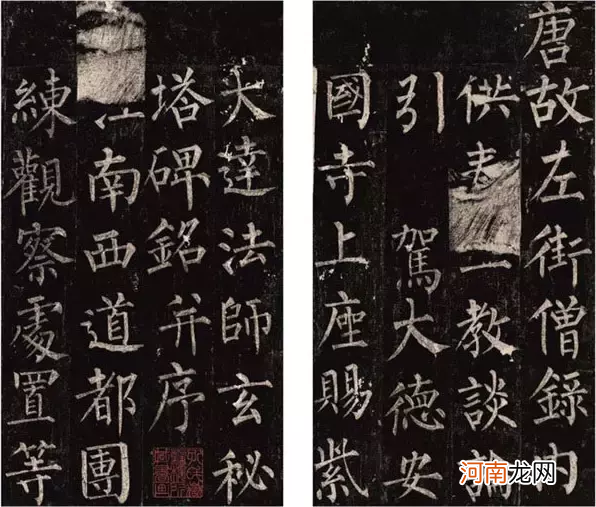 唐故左街僧錄內
供教談論
引 駕大德安
國寺上座賜紫
大達法師玄秘
塔碑銘并序
南西道都團
練觀察處置等
河南龙网